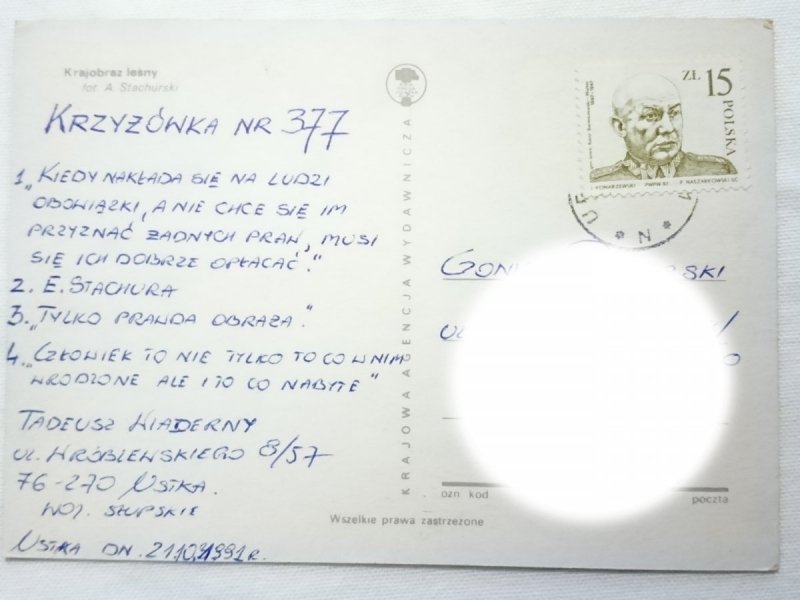 Krajobraz leśny
fot A. Stachurski
KRZYŻÓWKA NR 377
1. „KIEDY NAKŁADA SIĘ NA LUDZI
OBOWIĄZKI, A NIE CHCE SIĘ IM
PRZYZNAĆ ŻADNYCH PRAW, MUSI
SIĘ ICH DOBRZE OPŁACAĆ."
2. E. STACHURA
3. „TYLKO PRAWDA OBRAŻA."
4. „CZŁOWIEK TO NIE TYLKO TO CO W NIM
WRODZONE ALE I TO CO NABYTE"
TADEUSZ WIADERNY
UL. WRÓBLEWSKIEGO 8/57
76-270 USTKA.
WOJ. SŁUPSKIE
USTKA DN. 21.10.1991 R.
KRAJOWA AGENCJA WYDAWNICZA
Wszelkie prawa zastrzeżone
ZŁ 15
POLSKA
PWPW 87
P. NASZARKOWSKI SC.
N
GON
SKI
UL
ozn kod
poczta